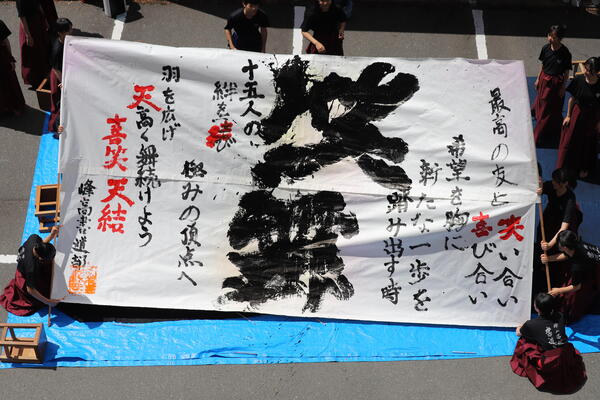 最高の友と
笑い合い
喜び合い
希望を胸に
新たな一歩を
踏み出す時
十五人の
絆を結び
極みの頂点へ
羽を広げ
天高く舞続けよう
喜笑天結
峰高書道部